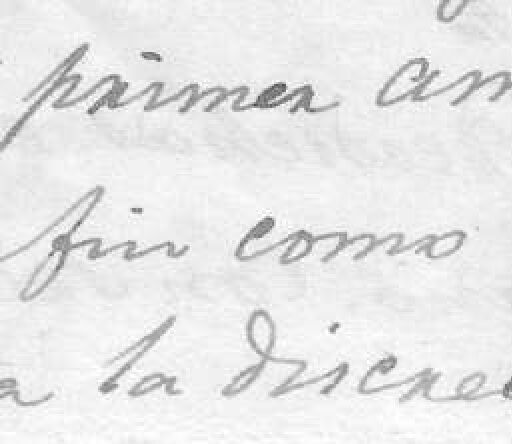 primer am
fin como
a la discre